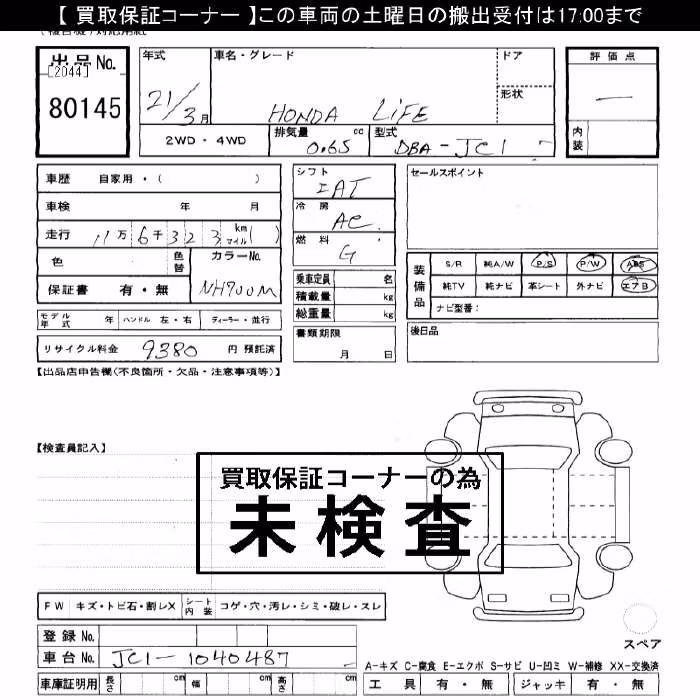 【 買取保証コーナー 】この車両の土曜日の搬出受付は17:00まで
出品No.
[2044]
80145
年式 車名・グレード ドア 評価点
21/3月 HONDA LiFE 形状 —
2WD・4WD 排気量 cc 型式 内装
0.65 DBA-JC1
車歴 自家用・( )
車検 年 月
走行 11万6千323 km マイル( )
色 色替 カラーNo.
保証書 有・無 NH700M
モデル年式 年 ハンドル 左・右 ディーラー・並行
リサイクル料金 9380 円 預託済
シフト
IAT
冷房
AC
燃料
G
乗車定員 名
積載量 kg
総重量 kg
書類期限
月 日
セールスポイント
装備品 S/R 純A/W P/S P/W ABS
純TV 純ナビ 革シート 外ナビ エアB
ナビ型番:
後日品
【出品店申告欄(不良箇所・欠品・注意事項等)】
【検査員記入】
買取保証コーナーの為
未検査
FW キズ・トビ石・割レX シート内装 コゲ・穴・汚レ・シミ・破レ・スレ
登録No.
車台No. JC1-1040487
車庫証明用 長さ cm 幅 cm 高さ cm
スペア
A-キズ C-腐食 E-エクボ S-サビ U-凹ミ W-補修 XX-交換済
工具 有・無 ジャッキ 有・無